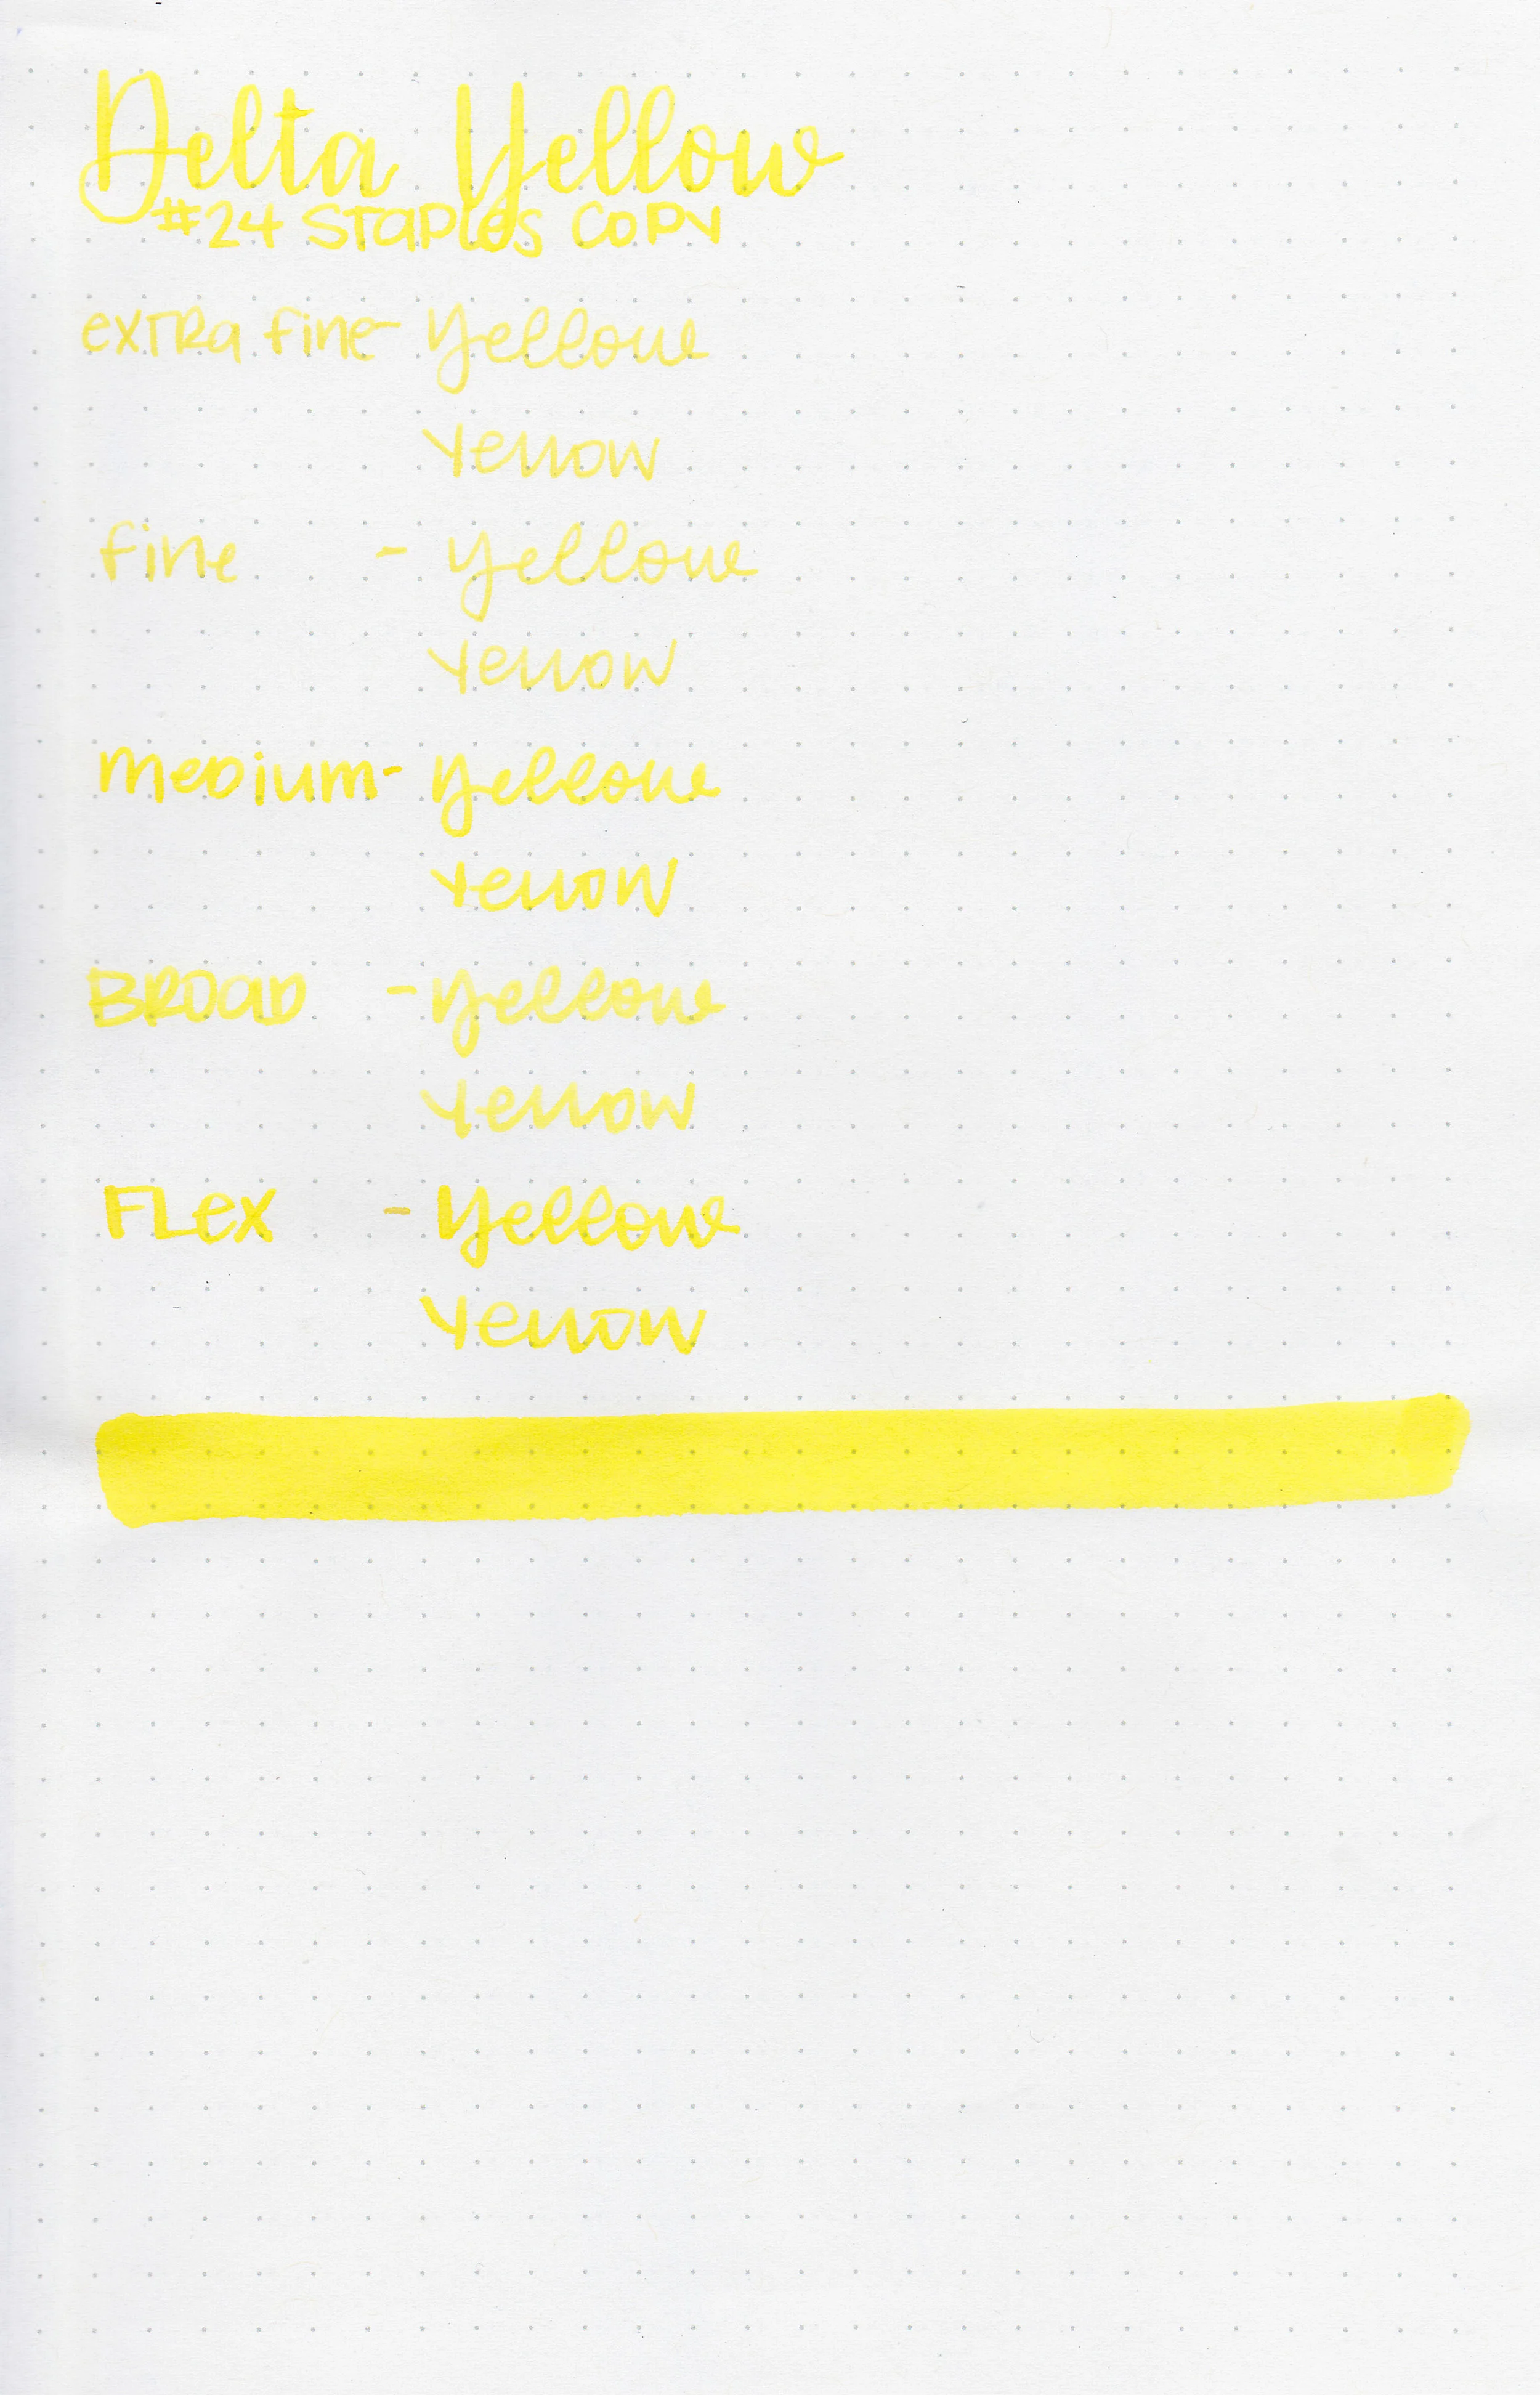 Delta Yellow
#24 Staples Copy
extra fine - Yellow
Yellow
fine - Yellow
Yellow
medium - Yellow
Yellow
Broad - Yellow
Yellow
Flex - Yellow
Yellow